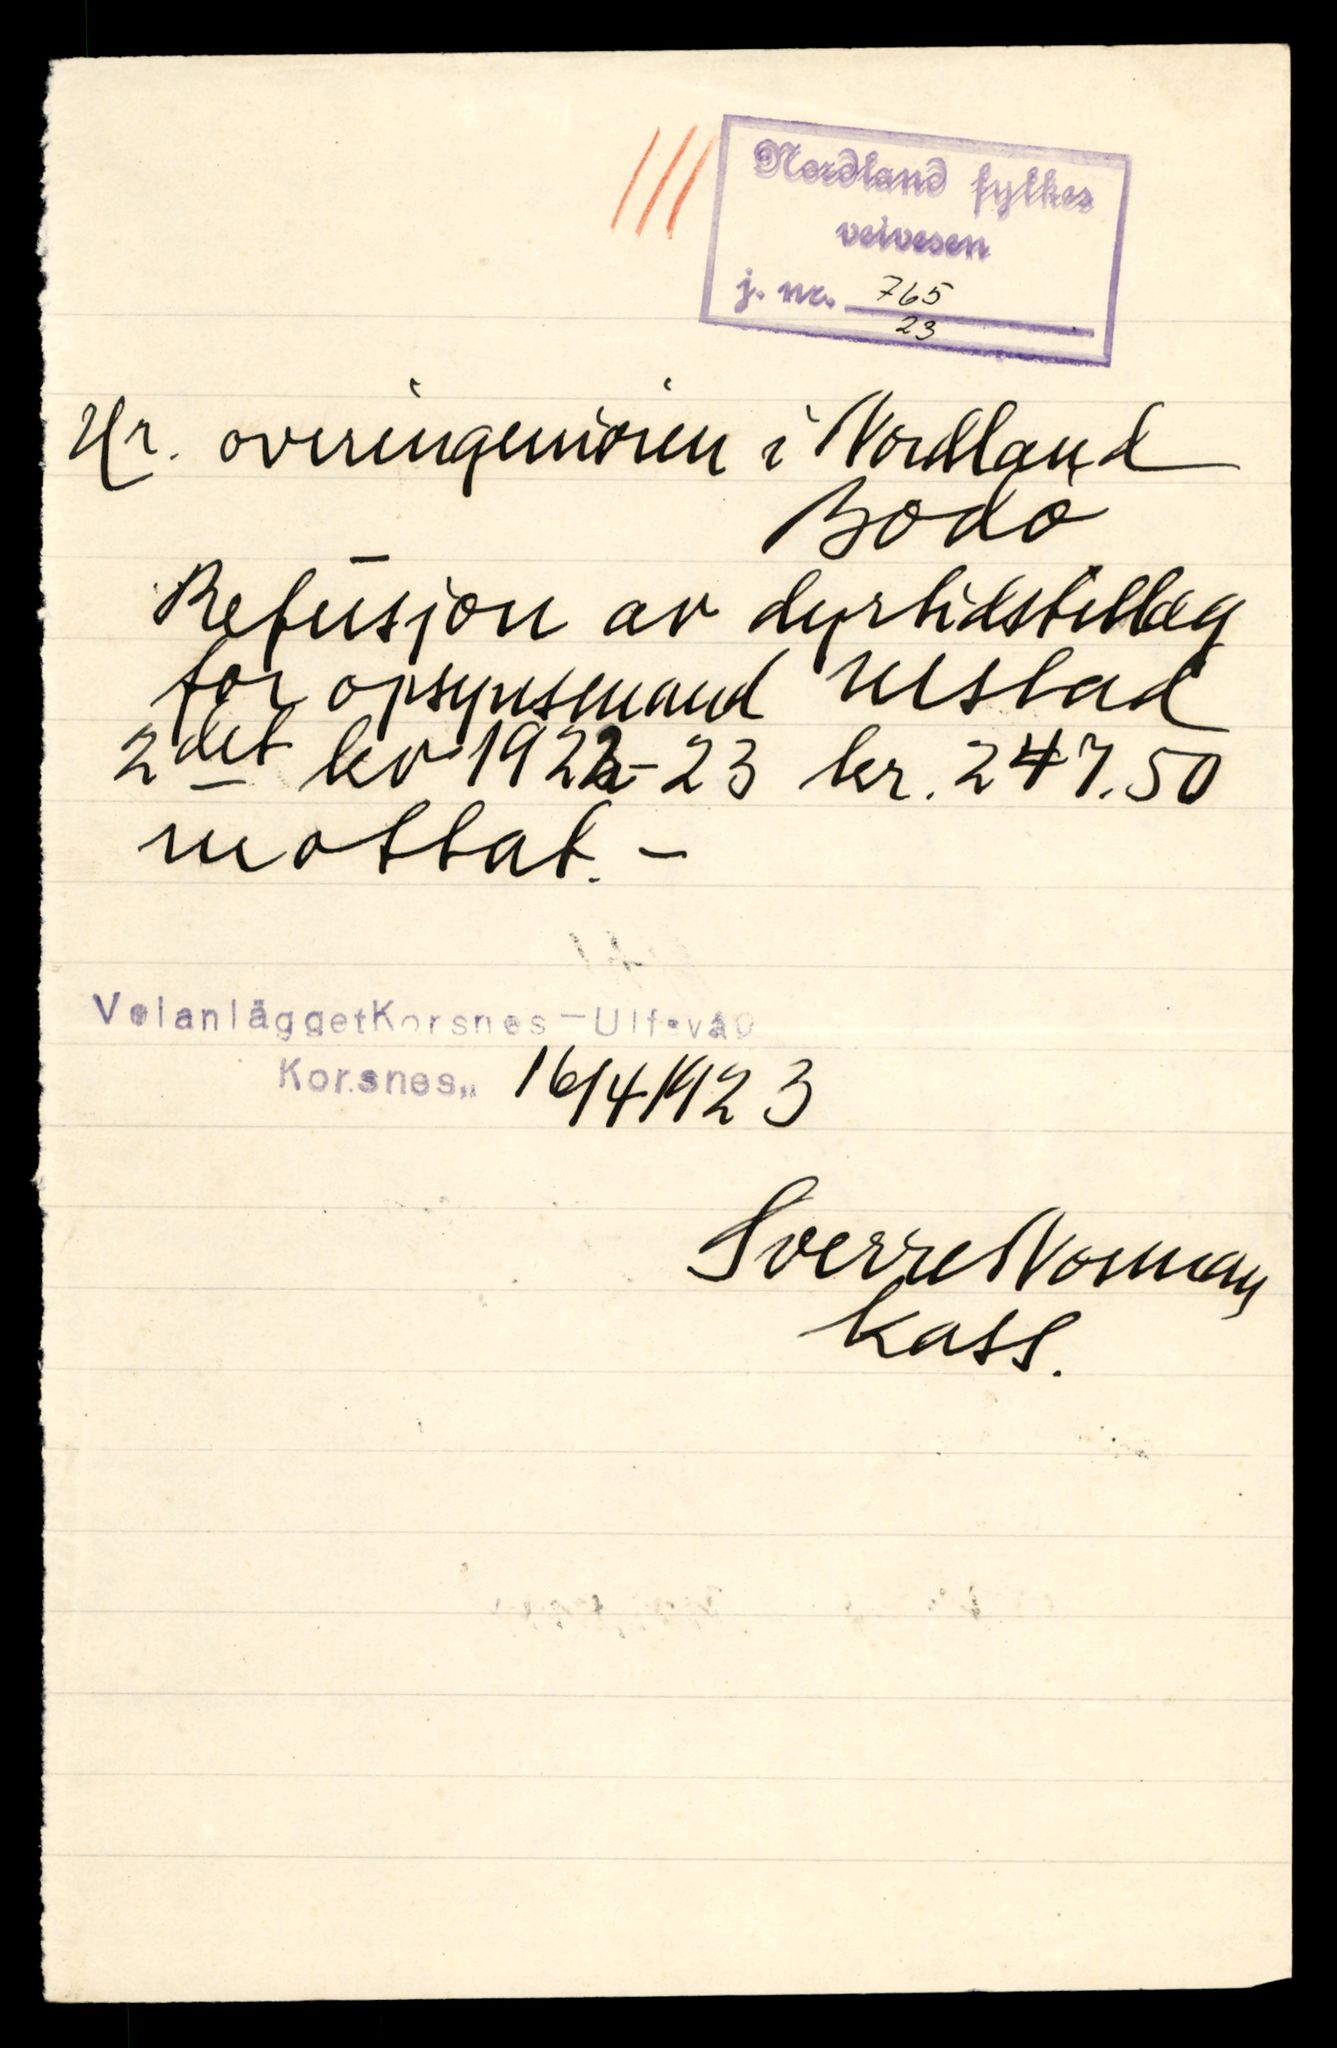 Nordland fylkes
veivesen
j. nr. 765
23
Hr. overingeniøren i Nordland
Bodø
Refusjon av dyrtidstillæg
for opsynsmand
2det kv 1922-23 kr. 247.50
mottat. -
VeianläggetKorsnes-Ulfsvåg
Korsnes,, 16/4 1923
Sverre Norman
kass.